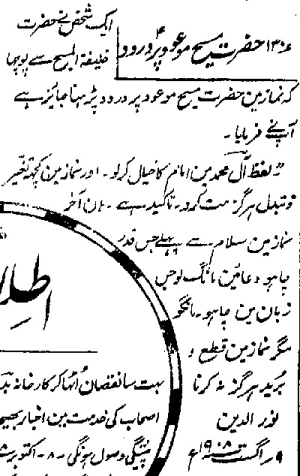 ۱۳۰۶ حضرت مسیح موعود پر درود
ایک شخص نے حضرت
خلیفۃ المسیح سے پوچھا
کہ نماز مین حضرت مسیح موعود پر درود پڑہنا جایز ہے
آپنے فرمایا۔
لفظ آل محمد مین امام کا خیال کرلو۔ اور نماز مین کچھ تغیر
و تبدل ہرگز مت کرو۔ تاکید ہے۔ ہان آخر
نماز مین سلام سے پہلے جس قدر
چاہو دعائین مانگ لو جس
زبان مین چاہو۔ مانگو
مگر نماز مین قطع و
بُرید ہرگز نہ کرنا
نور الدین
۹ اگست ۱۹۰۸ء
بہت سا نقصان اُٹھا کر کارخانہ
اصحاب کی خدمت مین اخبار
پیشگی وصول ہوگی۔ ۸۔ اکتوبر